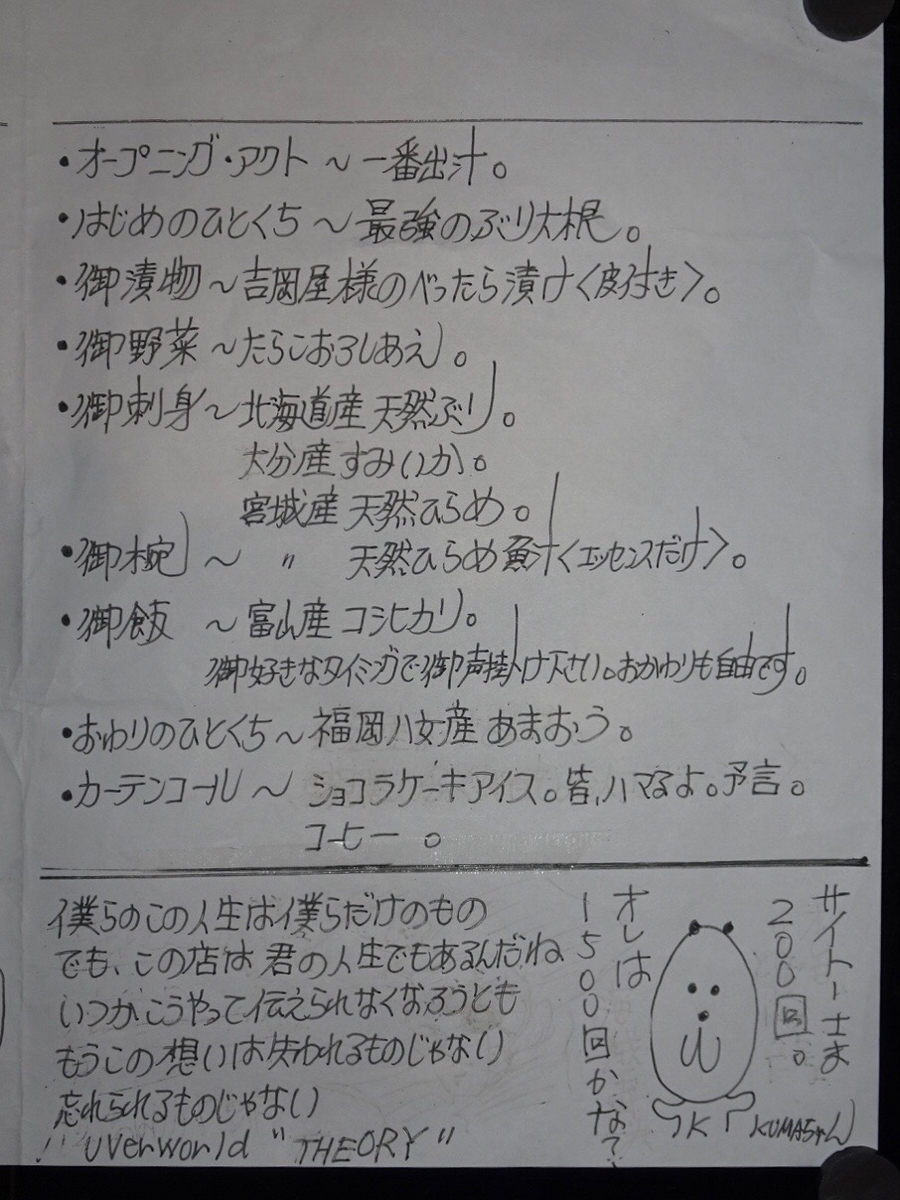 ・オープニング・アクト ～ 一番出汁。
・はじめのひとくち～最強のぶり大根。
・御漬物～吉岡屋様のべったら漬け〈皮付き〉。
・御野菜～たらこおろしあえ。
・御刺身～北海道産 天然ぶり。
大分産 すみいか。
宮城産 天然ひらめ。
・御椀 ～ 〃 天然ひらめ魚汁〈エッセンスだけ〉。
・御飯 ～富山産 コシヒカリ。
御好きなタイミングで御声掛け下さい。おかわりも自由です。
・おわりのひとくち～福岡八女産 あまおう。
・カーテンコール～ ショコラケーキアイス。皆、ハマるよ。予言。
コーヒー 。
僕らのこの人生は僕らだけのもの
でも、この店は 君の人生でもあるんだね
いつかこうやって伝えられなくなろうとも
もうこの想いは失われるものじゃない
忘れられるものじゃない
UVerworld "THEORY"
サイトーさま
200回。
オレは
1500回かな?
KUMAちゃん